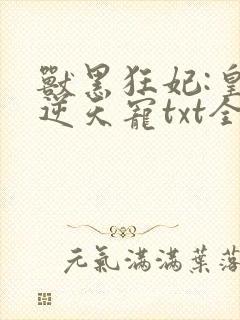 獸黑狂妃:皇
逆天寵txt全
元氣滿滿葉落